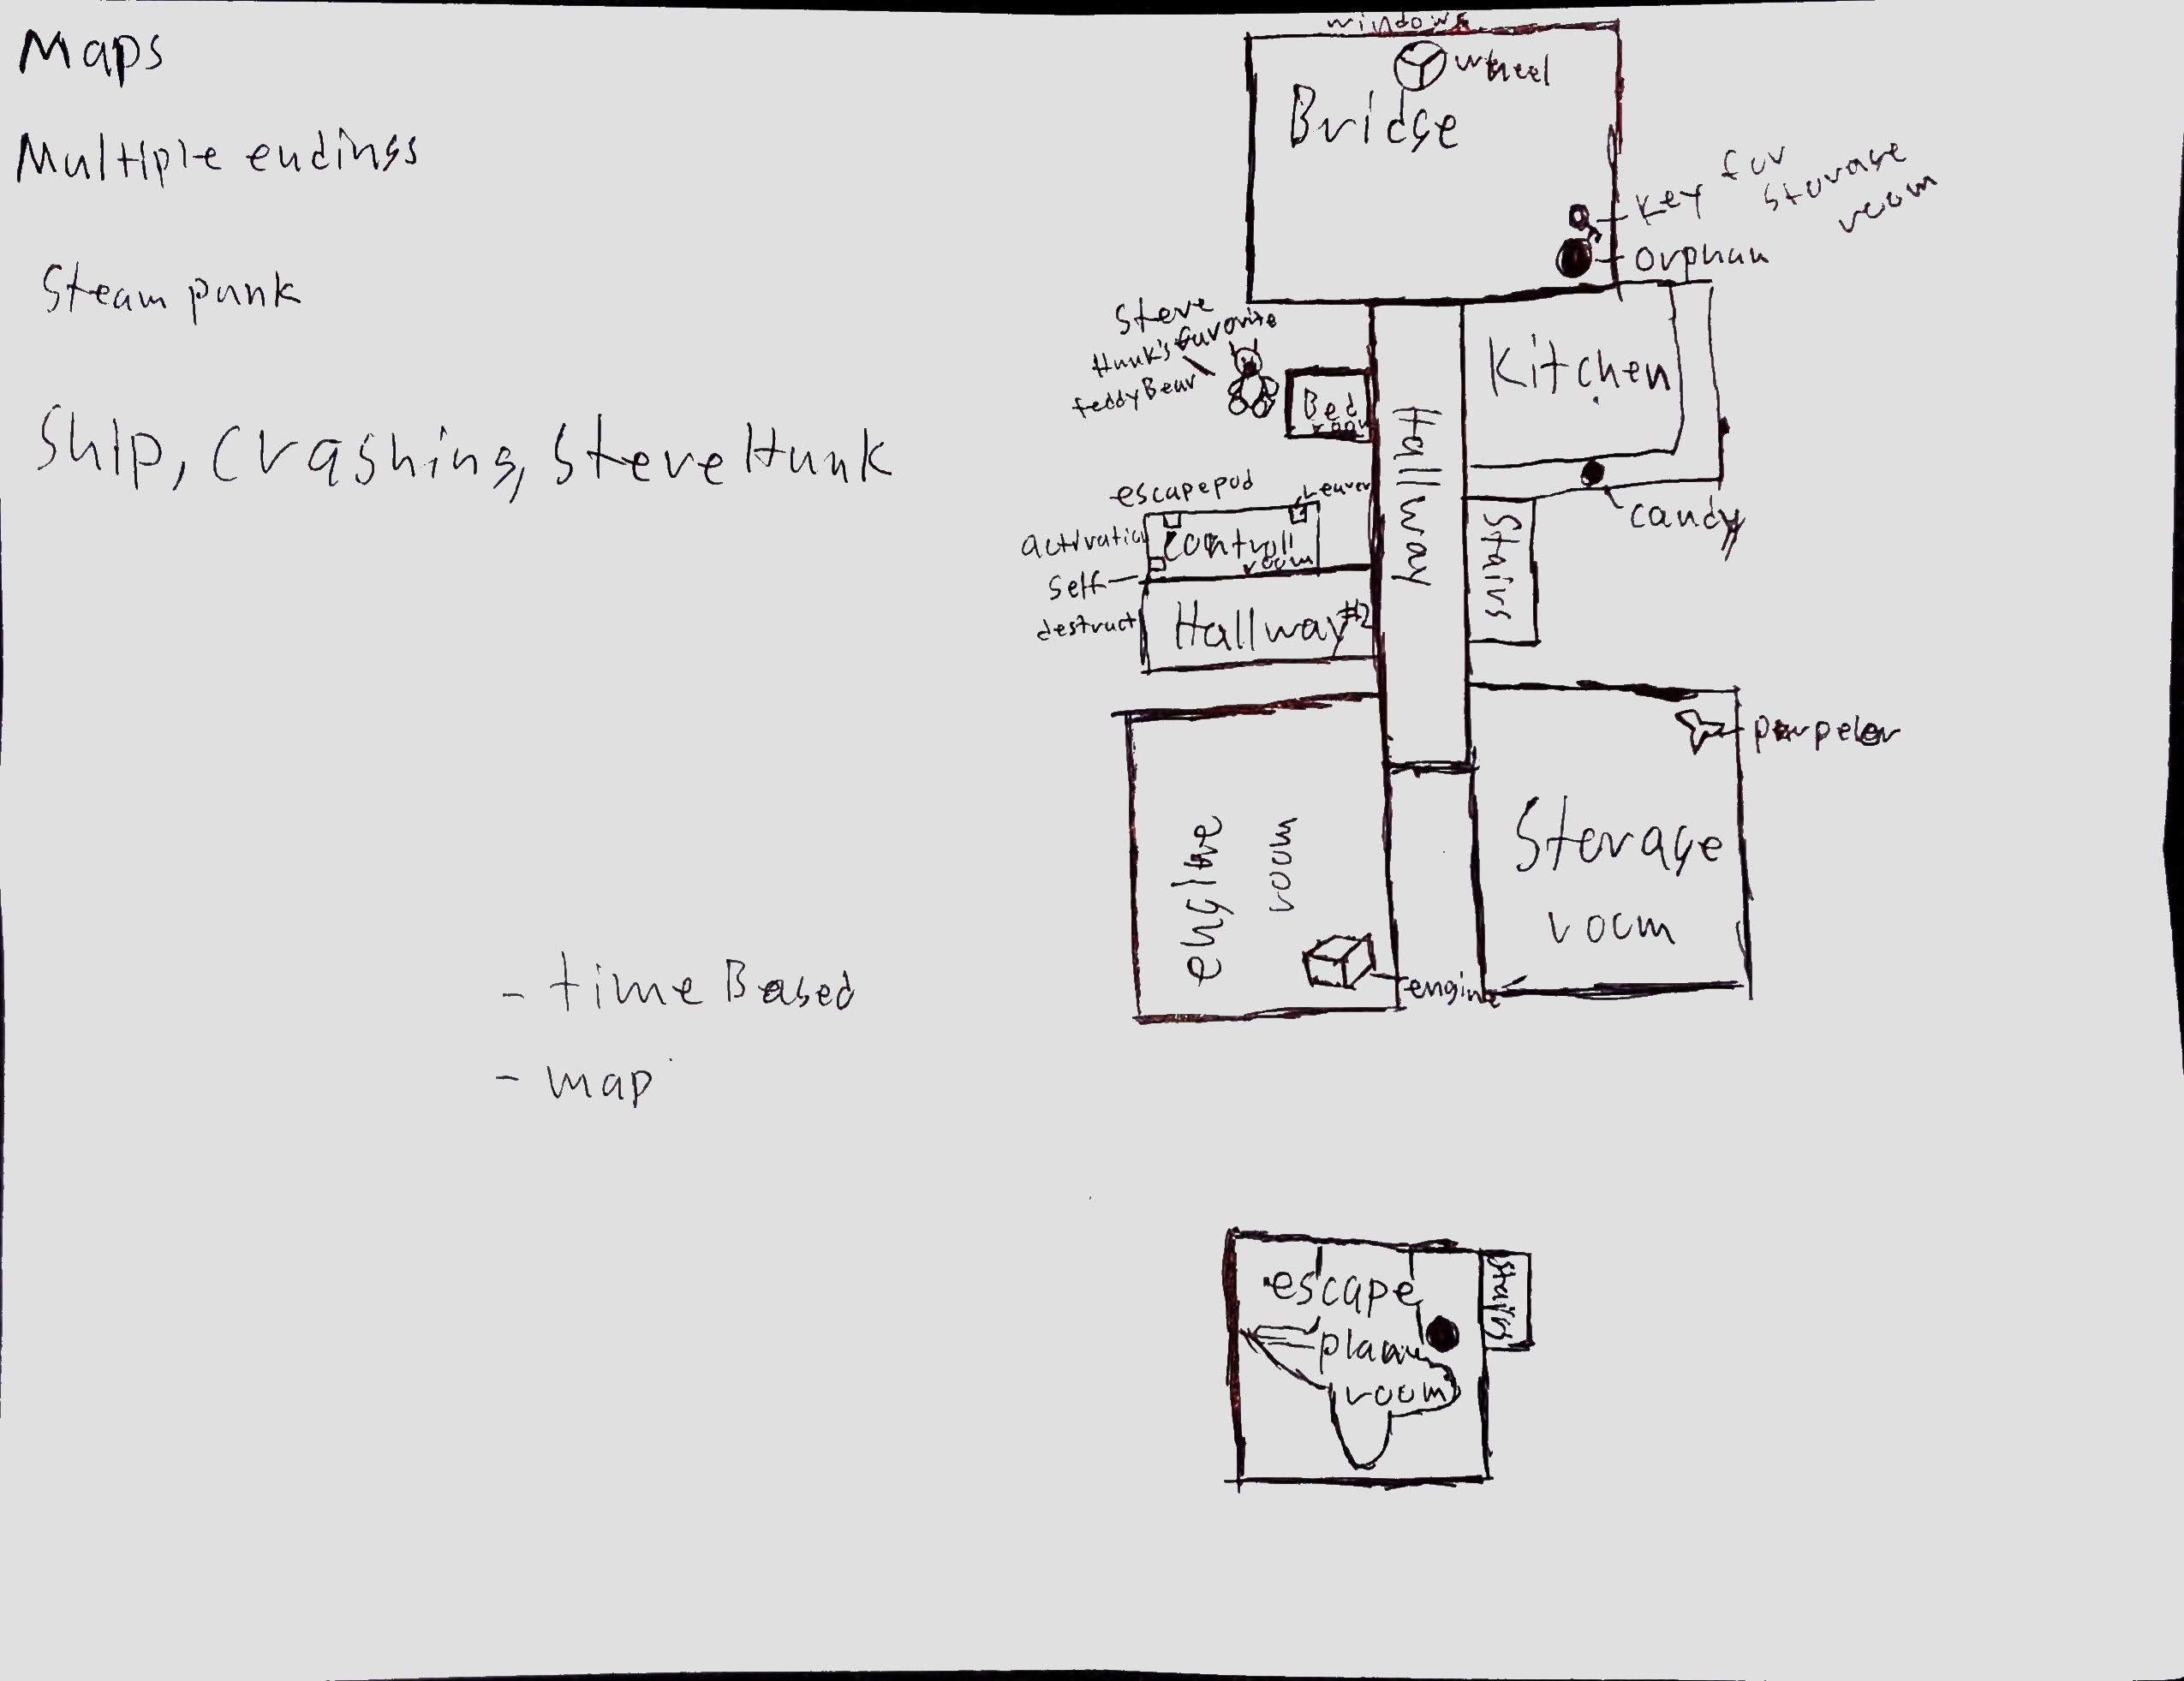 Maps
Multiple endings
Steam punk
Ship, crashing, Steve Hunk
- time Based
- map
windows
wheel
Bridge
key for
storage
room
orphan
Steve
Hunk's favorite
teddy Bear
Bed
room
Kitchen
Hallway
candy
Stairs
escapepod
Leaver
activation
controll
room
self
destruct
Hallway #2
engine
room
engine
perpeler
Storage
room
escape
plane
room
stairs